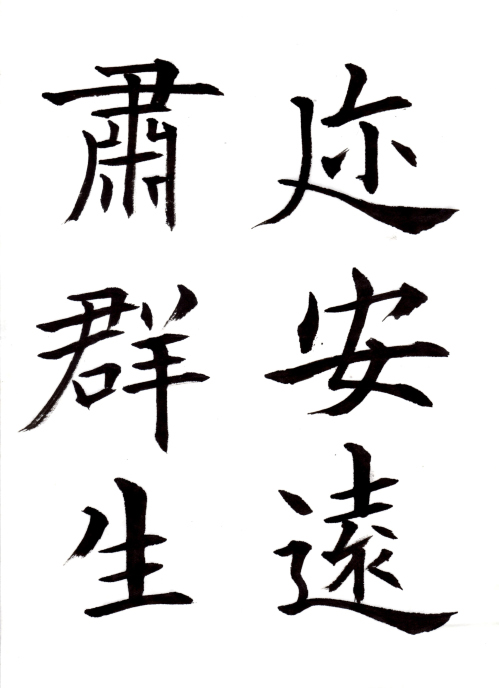 迩安遠
肅群生